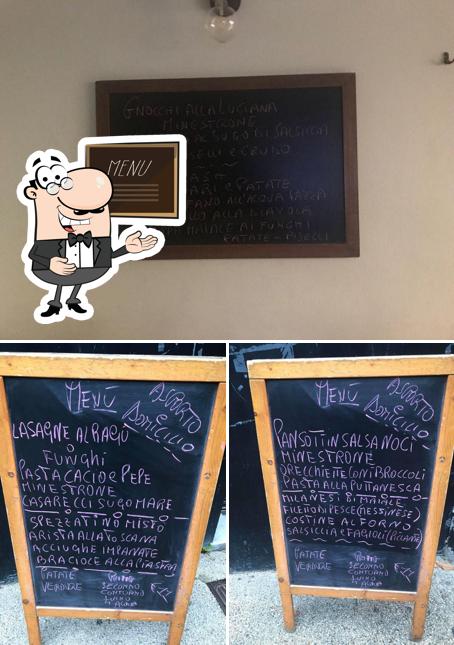 GNOCCHI ALLA LUCIANA
MINESTRONE
SUGO DI SALSICCIA
MENU
E CRUDO
PATATE
ALL'ACQUA PAZZA
ALLA DIAVOLA
MAIALE AI FUNGHI
PATATE - PISELLI
MENÙ
ASPORTO
E
DOMICILIO
LASAGNE AL RAGÙ
O
FUNGHI
PASTA CACIO E PEPE
MINESTRONE
CASARECCI SUGO MARE
SPEZZATINO MISTO
ARISTA ALLA TOSCANA
ACCIUGHE IMPANATE
BRACIOLE ALLA PIASTRA
PATATE
VERDURE
PRIMO
SECONDO
CONTORNO
VINO
ACQUA
MENÙ
ASPORTO
E
DOMICILIO
PANSOTTI IN SALSA NOCI
MINESTRONE
ORECCHIETTE CON I BROCCOLI
PASTA ALLA PUTTANESCA
MILANESI DI MAIALE
FILETTO DI PESCE (MESSINESE)
COSTINE AL FORNO
SALSICCIA E FAGIOLI (PICCANTE)
PATATE
VERDURE
PRIMO
SECONDO
CONTORNO
VINO
ACQUA